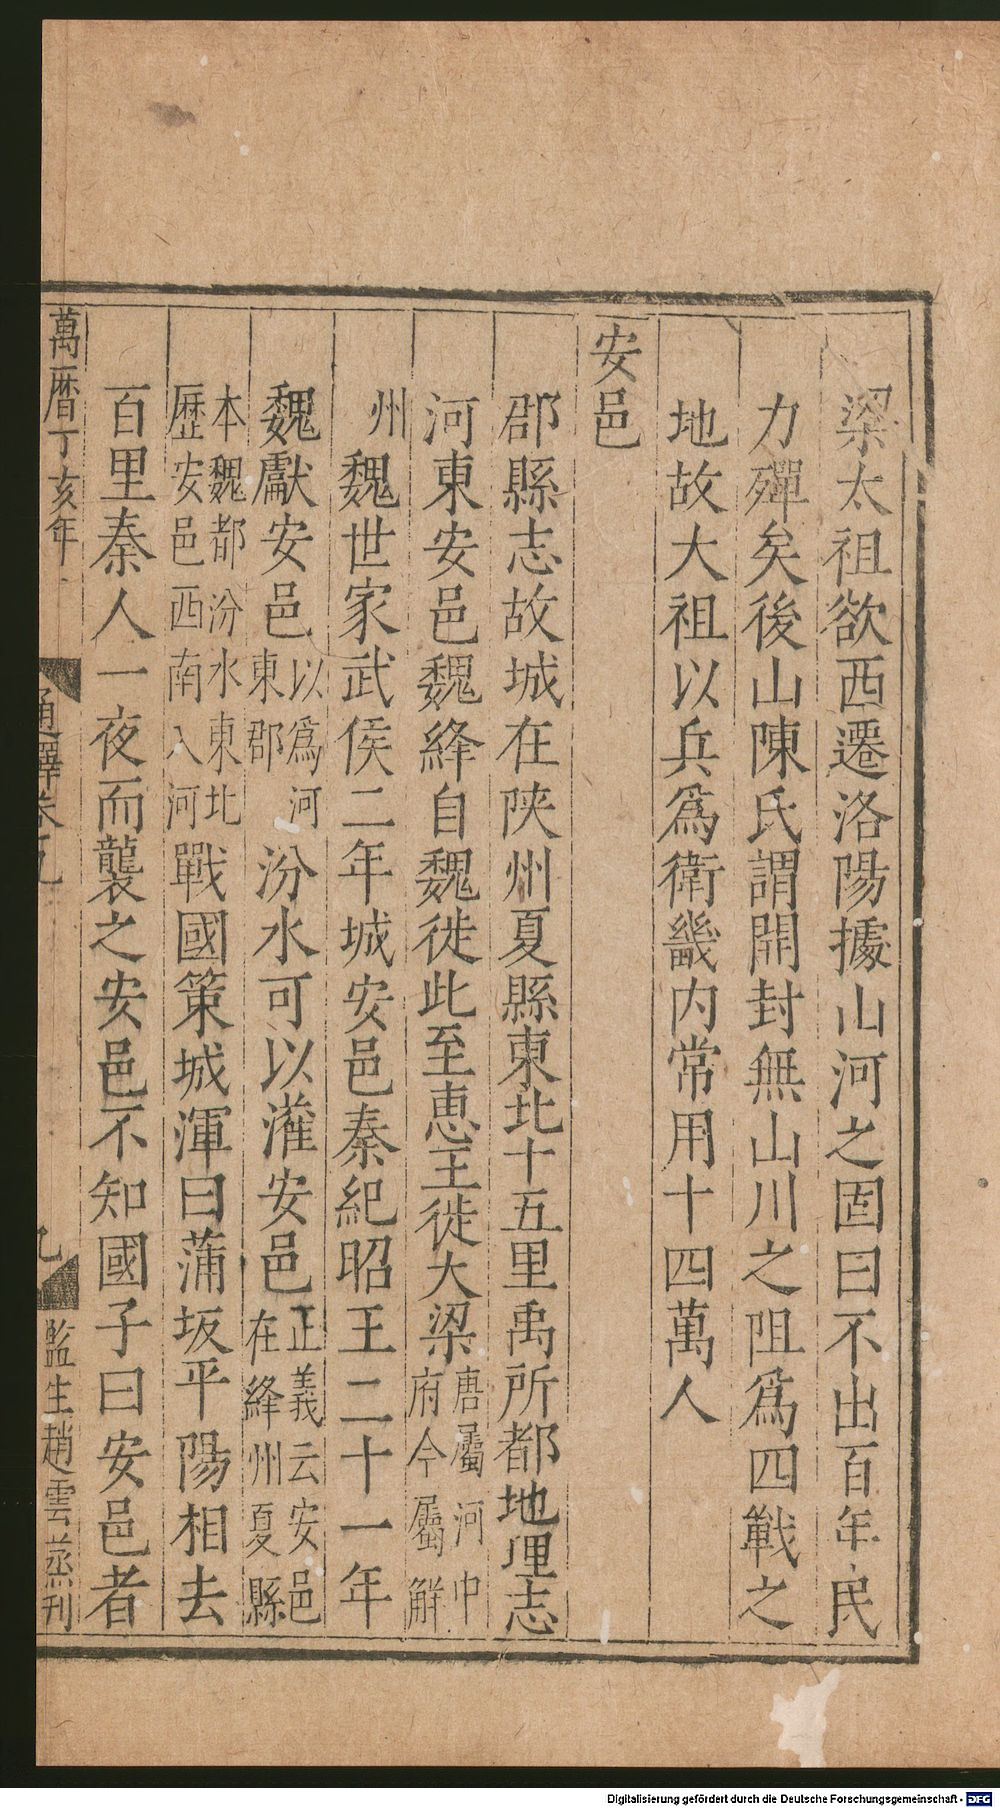 梁太祖欲西遷洛陽據山河之固曰不出百年民
力殫矣後山陳氏謂開封無山川之阻爲四戰之
地故大祖以兵爲衛畿内常用十四萬人
安邑
郡縣志故城在陝州夏縣東北十五里禹所都地理志
河東安邑魏絳自魏徙此至惠王徙大梁唐屬河中府今屬解
州魏世家武侯二年城安邑秦紀昭王二十一年
魏獻安邑以爲河東郡汾水可以灌安邑正義云安邑在絳州夏縣
本魏都汾水東北歷安邑西南入河戰國策城渾曰蒲坂平陽相去
百里秦人一夜而襲之安邑不知國子曰安邑者
萬曆丁亥年
通釋卷九
九
監生趙雲蒸刊
Digitalisierung gefördert durch die Deutsche Forschungsgemeinschaft - DFG